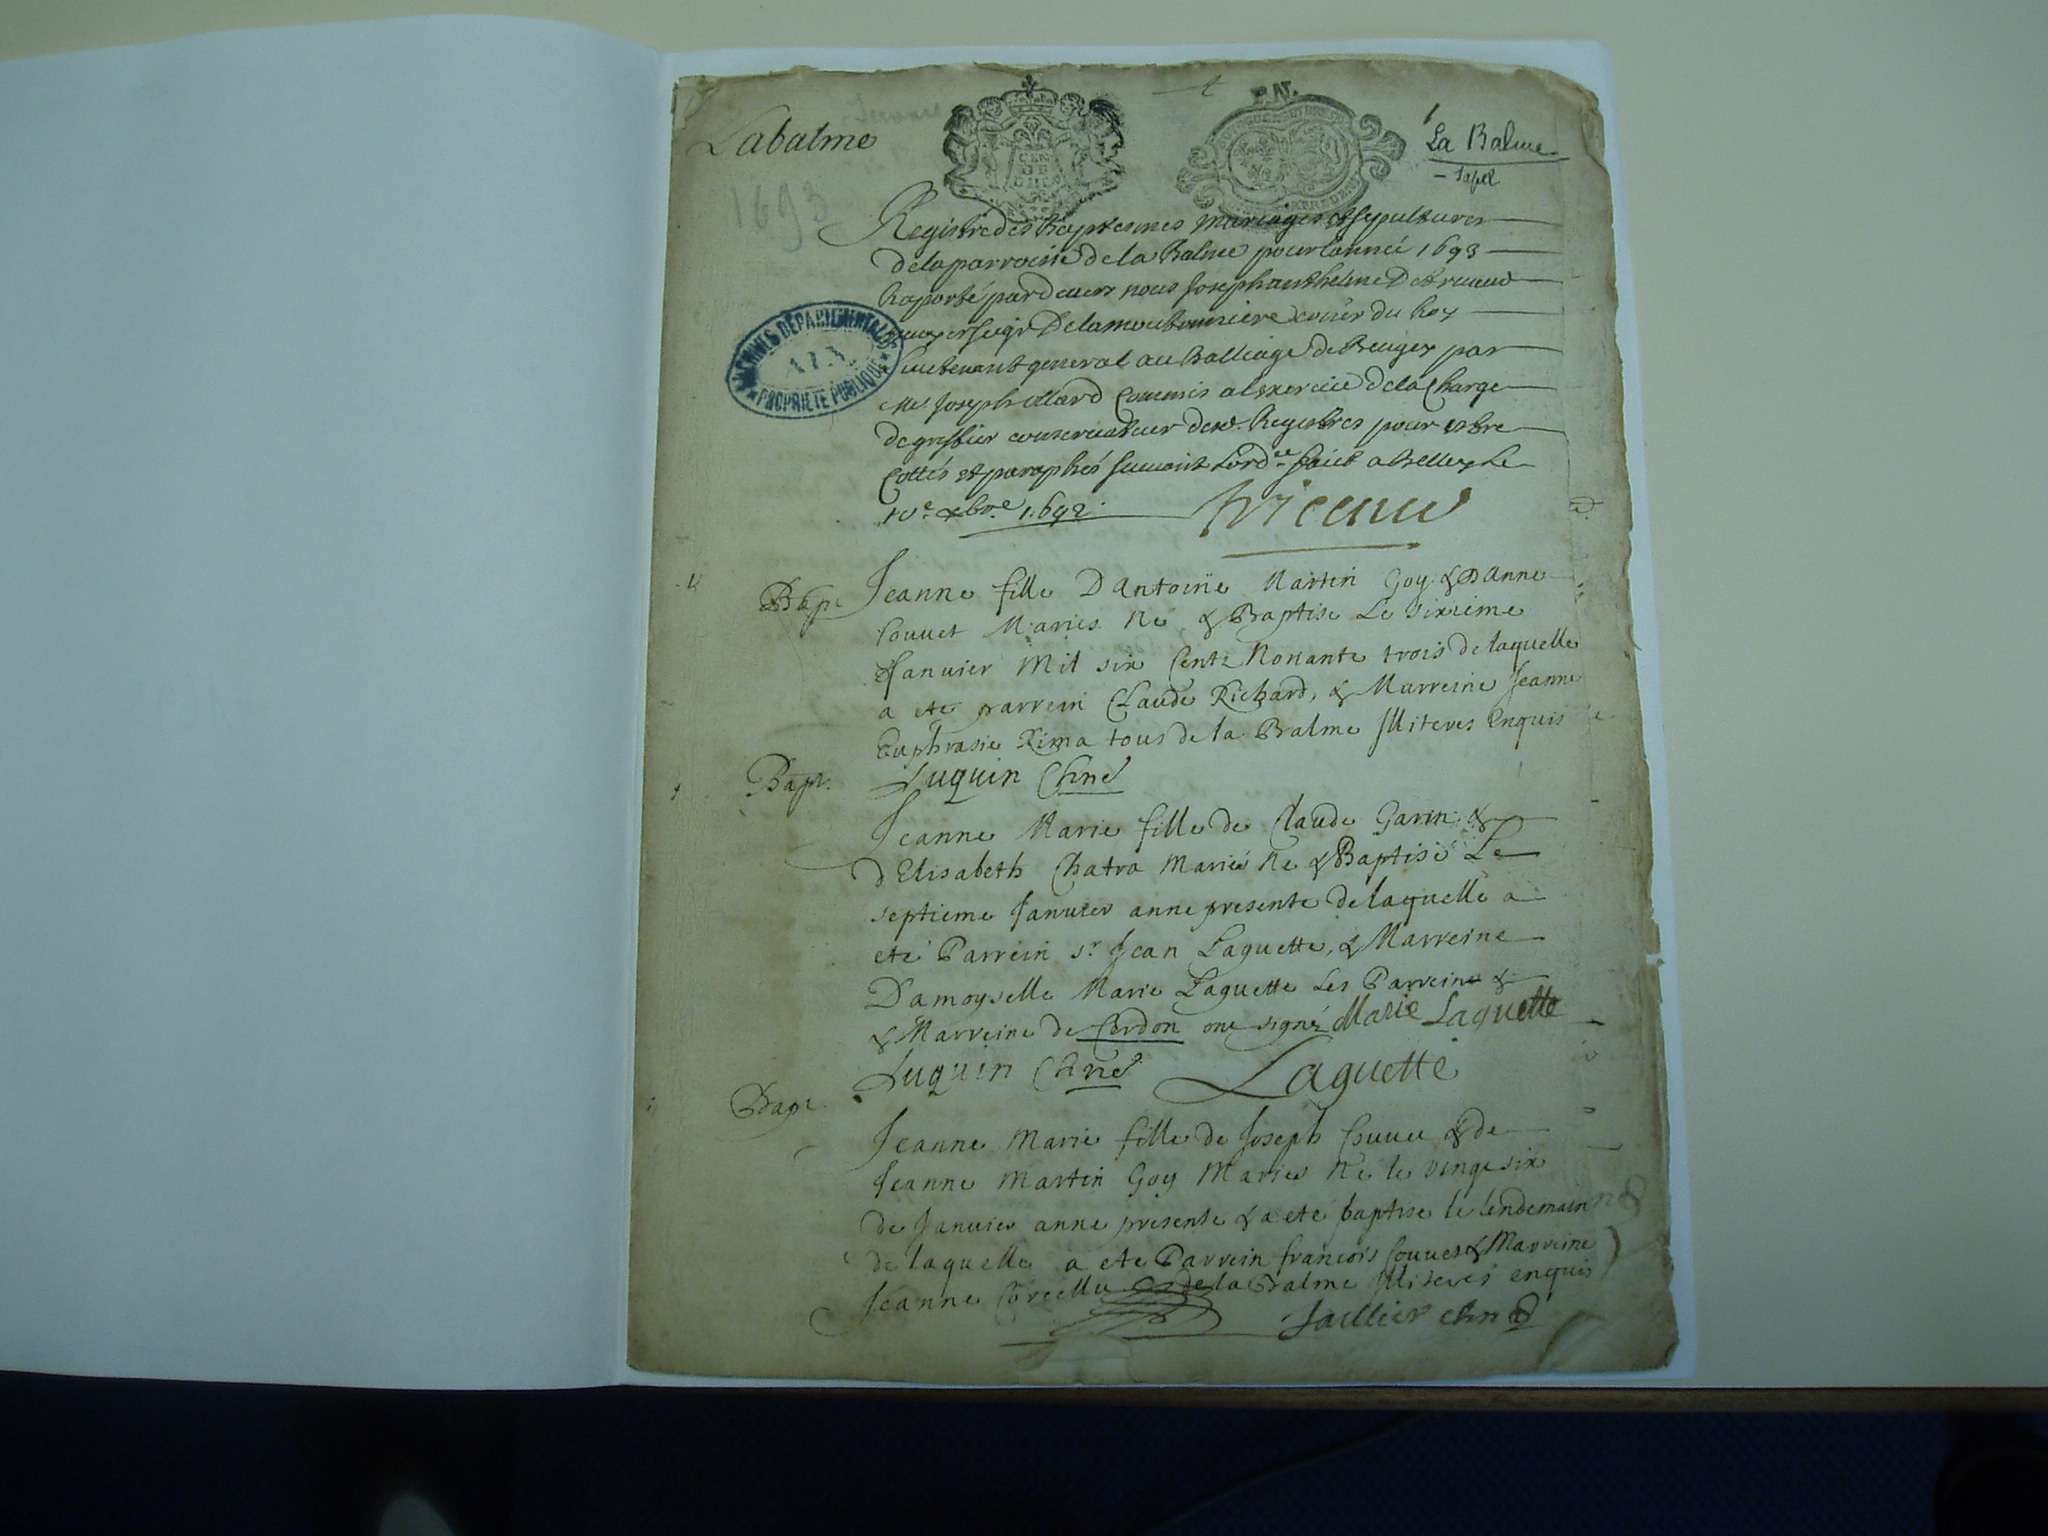 Labalme
La Balme
1693
Registre des Baptesmes mariages et sepultures
de la parroisse de la Balme pour lannee 1693
Raporté pardevers nous Joseph anthelme
du Roy
Lieutenant general au Balliage de Beugey par
Me Joseph Commis a lexercice de la Charge
de greffier conservateur Registres pour estre
Cottés et paraphés suivant lordce faict a Belley le
10e xbre 1692
ARCHIVES DÉPARTEMENTALES
PROPRIÉTÉ PUBLIQUE
Bapt. Jeanne fille D'Antoine Martin Goy & D'anne
Couvet Maries Ne & Baptise Le sixieme
Januier Mil six Centz Nonante trois de laquelle
a ete parrein Claude Richard, & Marreine Jeanne
Euphrasie Rima tous de la Balme Illiteres Enquis
Bapt. Luquin
Jeanne Marie fille de Claude Garin &
d'Elisabeth Chatra Mariés Ne & Baptisé Le
septieme Januier anne presente de laquelle a
eté Parrein sr Jean Laguette, & Marreine
Damoyselle Marie Laguette Les Parrein &
& Marreine de Cerdon ont signéz Marie Laguette
Luquin Laguette
Bapt. Jeanne Marie fille de Joseph & de
Jeanne Martin Goy Maries Ne le vingt six
de Januier anne presente & a eté baptise le lendemain
de laquelle a ete Parrein francois Couvet & Marreine
Jeanne de la Balme Illiteres enquis